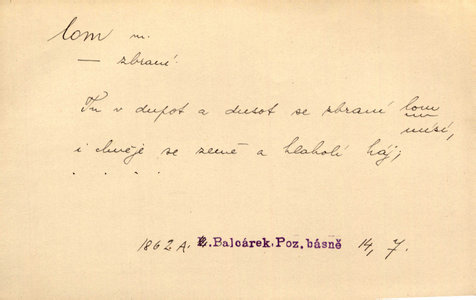 lom m.
— zbraně.
Tu v dupot a dusot se zbraní lom
mísí,
i chvěje se země a hlaholí háj;
. . . .
1862 A. E. Balcárek. Poz. básně 14, 7.